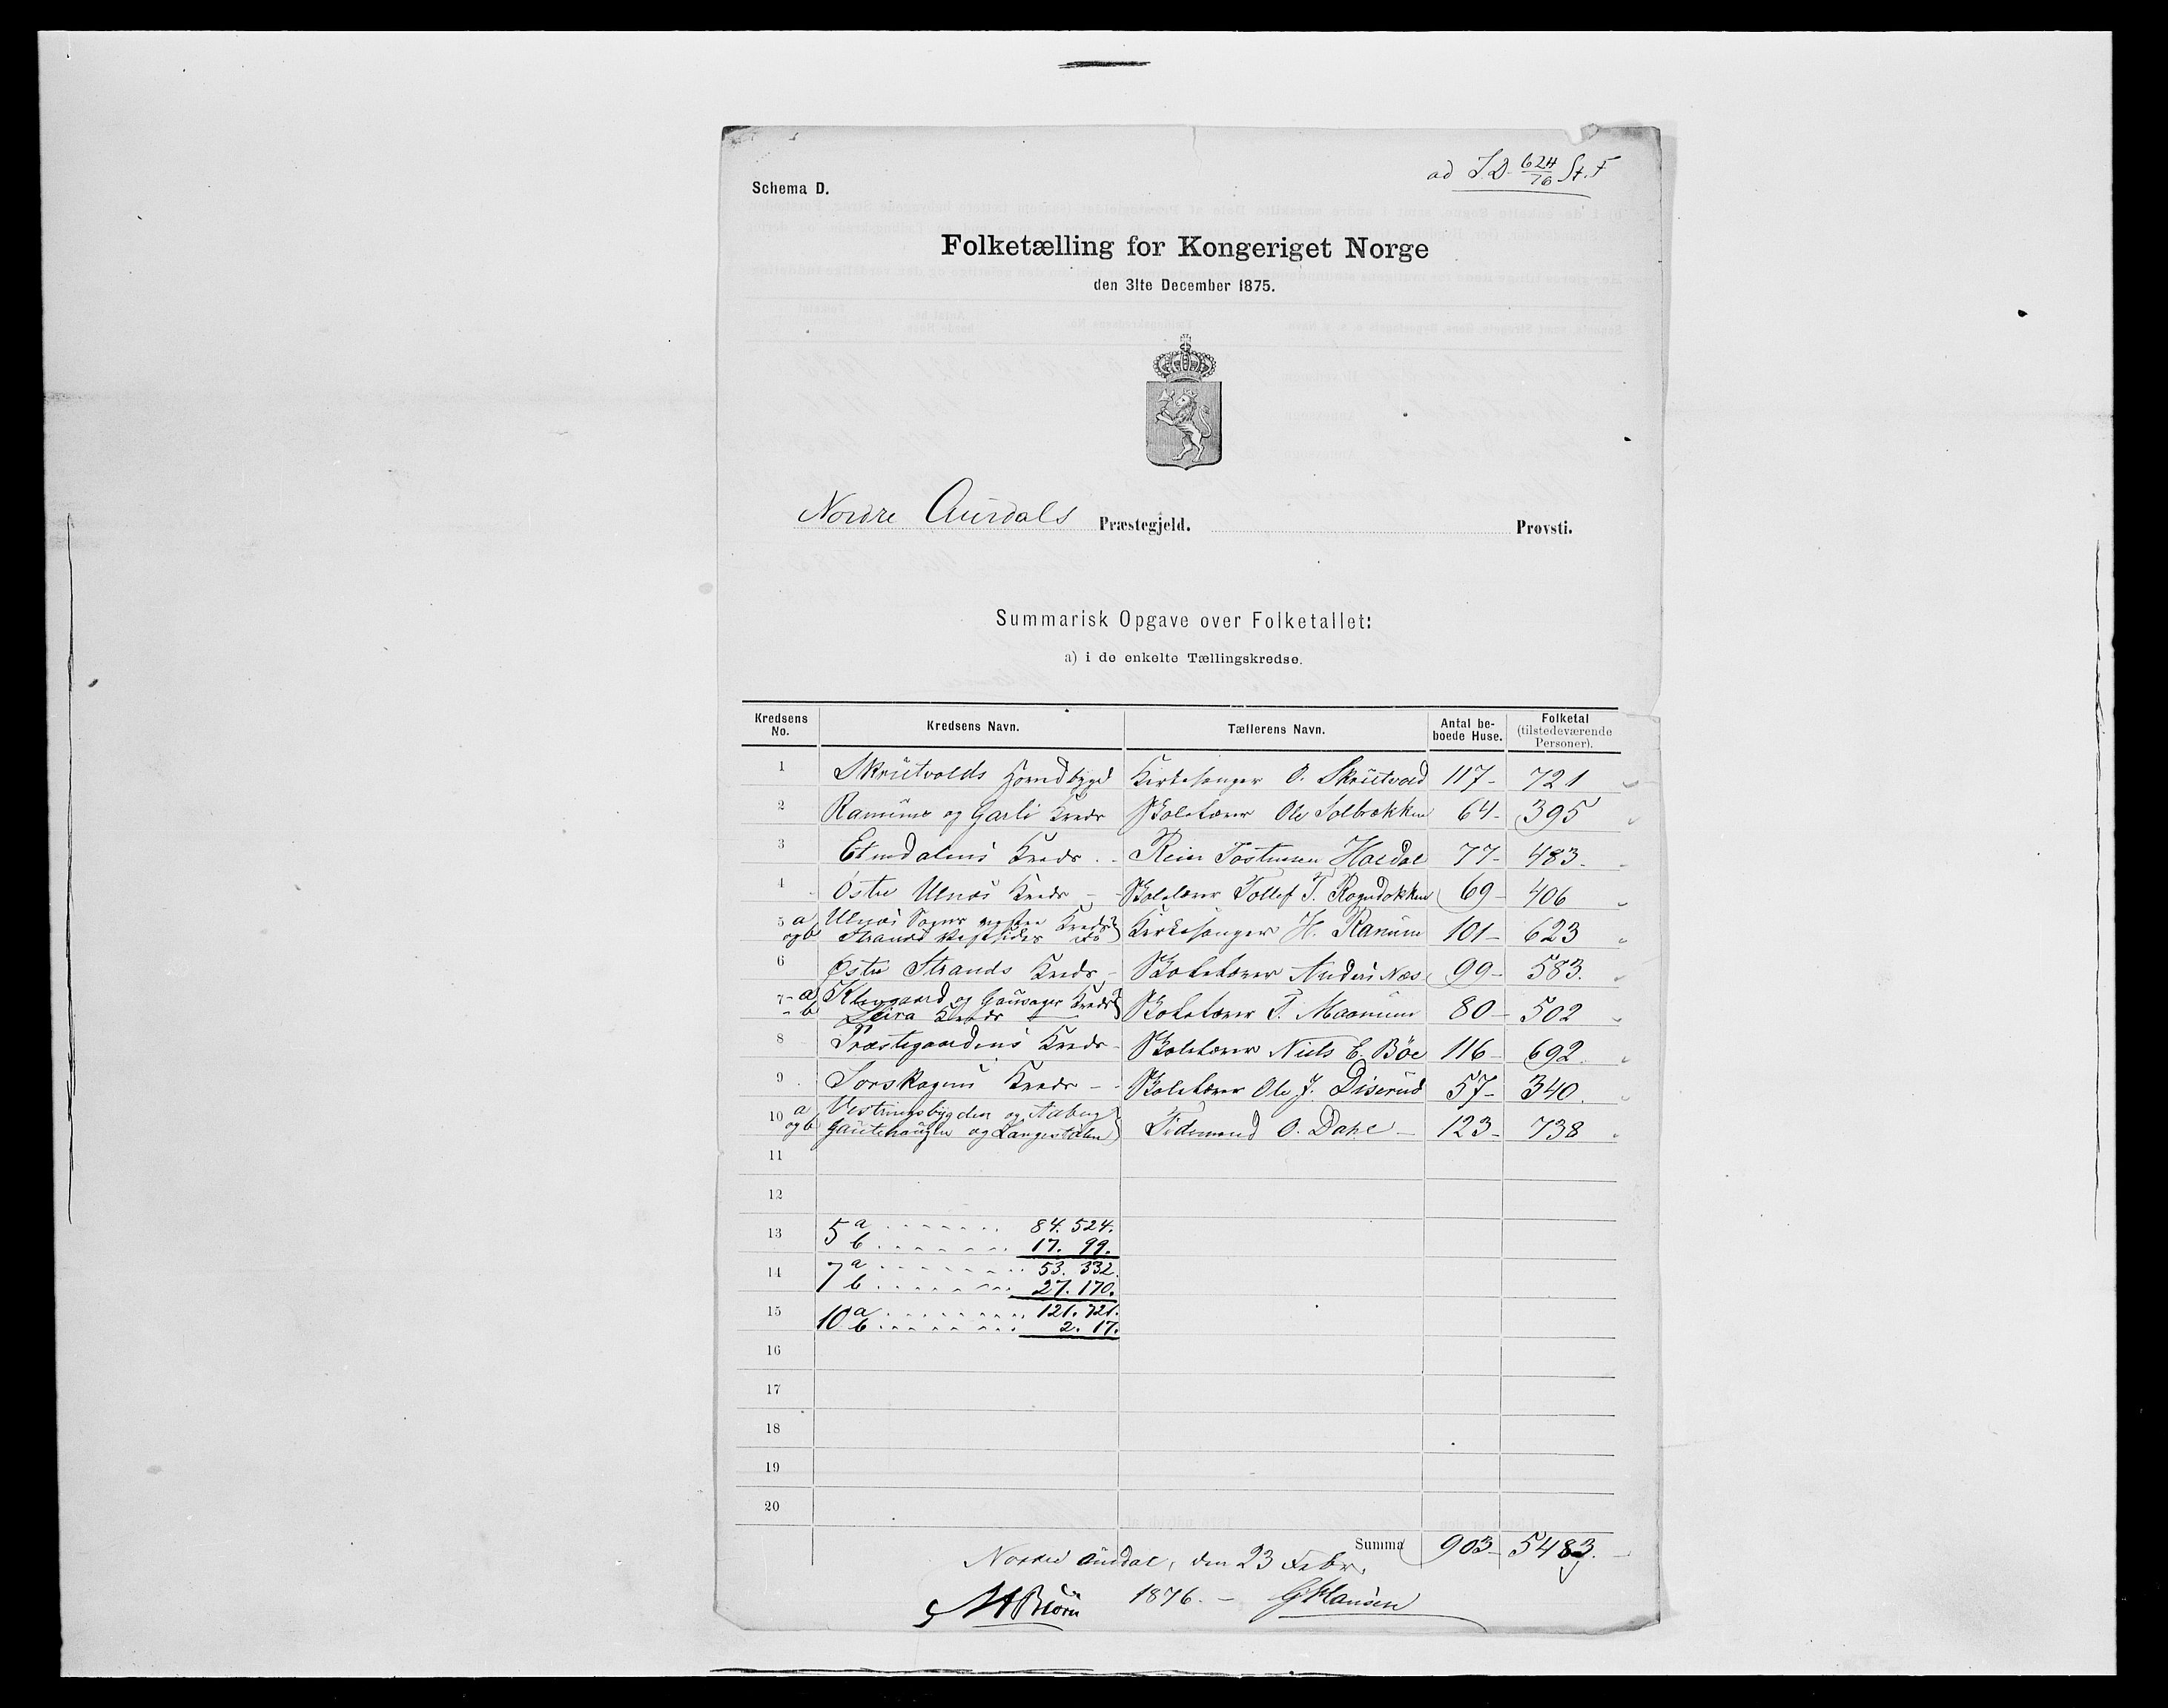 ad J.D. 624/76 St. F
Schema D.
Folketælling for Kongeriget Norge
den 31te December 1875.
Nordre Aurdals Præstegjeld. Provsti.
Summarisk Opgave over Folketallet:
a) i de enkelte Tællingskredse.
Kredsens No. Kredsens Navn. Tællerens Navn. Antal beboede Huse. Folketal (tilstedeværende Personer).
1 Skrutvolds Kirkesanger O. Skrutvold 117 - 721
2 Ranums og Garli Kreds Skolelærer Ole Solbrekken 64 - 395
3 Etnedalens Kreds Reier Tostensen Haldal 77 - 483 -
4 Østre Ulnæs Kreds - Skolelærer Tollef T. Rogndokken 69 - 406
5 a Ulnæs Sogns vestre Kreds
og b Strands Vestsides do Kirkesanger H. Ranum 101 - 623
6 Østre Strands Kreds - Skolelærer Anders Næs 99 - 583.
7 - a Klevgaard og Gausager Kreds
- b Leira Kreds Skolelærer T. Maanum 80 - 502
8 Præstegaardens Kreds - Skolelærer Niels E. Böe 116 - 692.
9 Sorskogens Kreds - - Skolelærer Ole J. Diserud 57 - 340.
10 a Vestringsbygden og Aaberg
og b Gautehaugen og Langestølen Tidemand O. Dahl - 123 - 738
11
12
13 5 a 84. 524.
b 17. 99.
14 7 a 53. 332.
b 27. 170.
15 10 a 121. 721.
b 2. 17.
16
17
18
19
20
Summa 903 - 5483.
Nordre Aurdal, den 23 Febr.
1876. - G Hansen